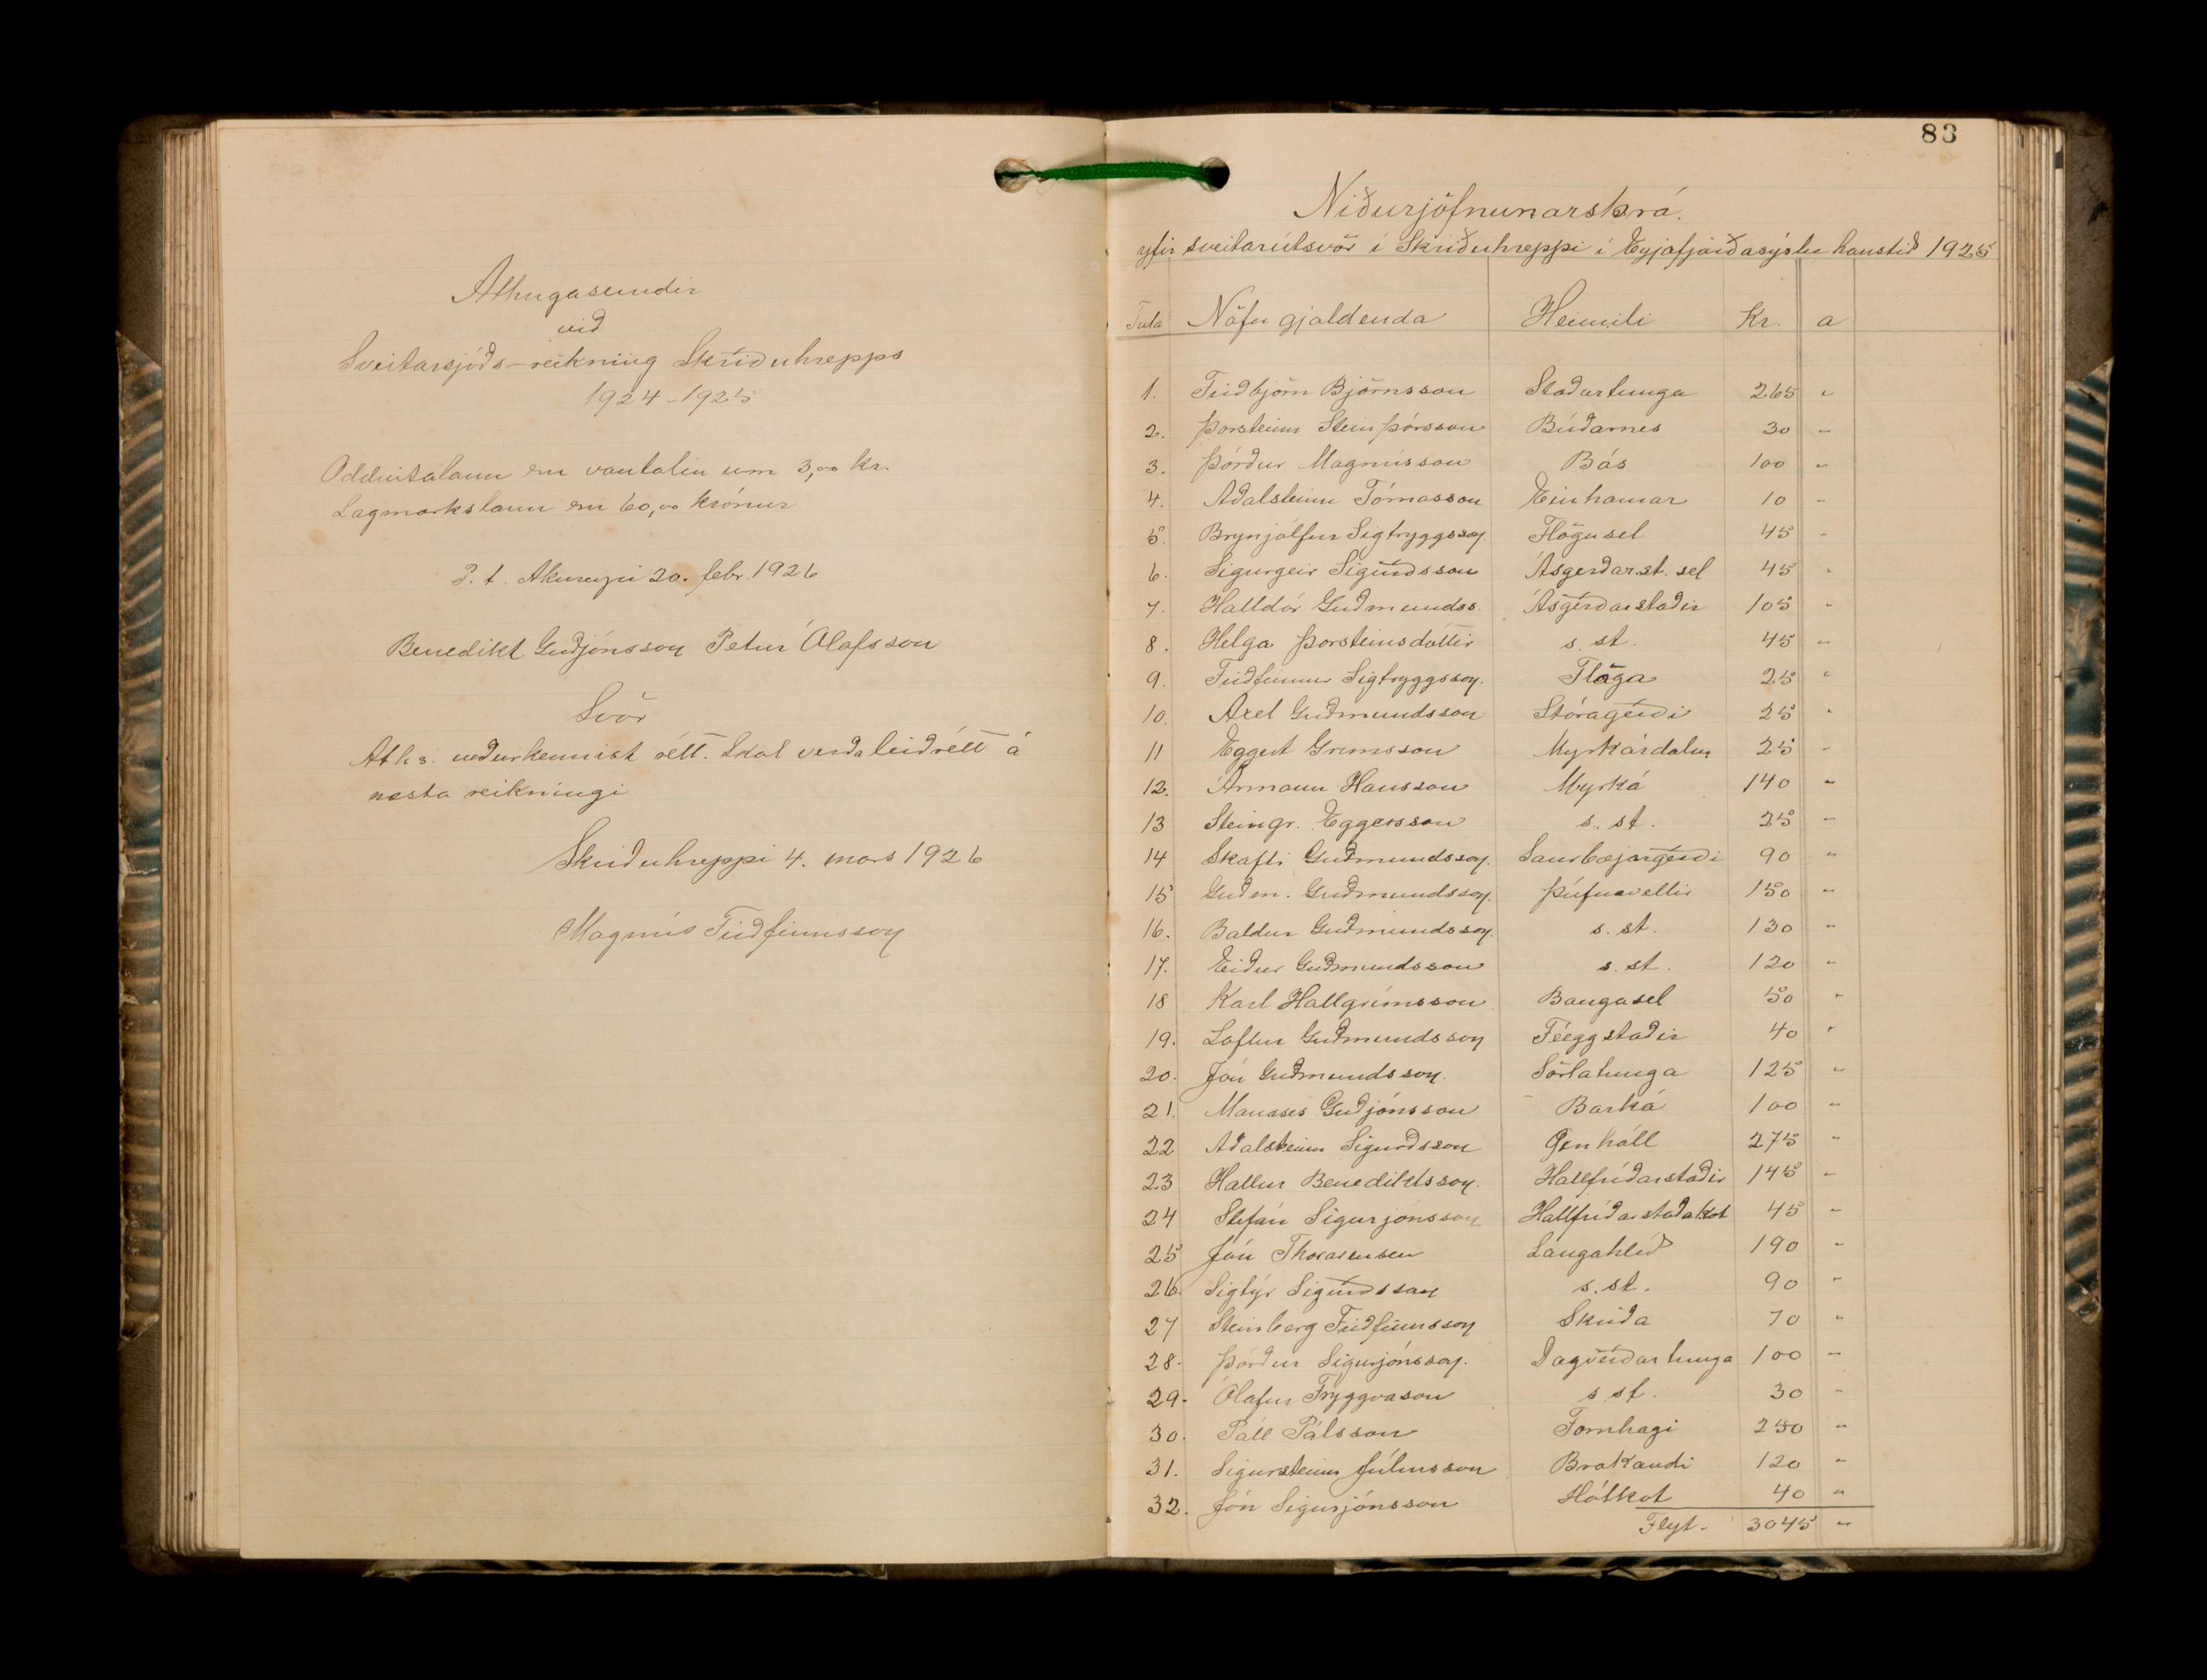 Athugasemdir
við
Sveitarsjóðs-reikning Skriðuhrepps
1924-1925
Oddvitalaun eru vantalin um 3,00 kr.
Lagmarkslaun eru 60,00 krónur
P. t. Akureyri 20. febr. 1926
Benedikt Guðjónsson Petur Ólafsson
Svör
Aths. viðurkennist rétt. Skal verða leiðrétt á
næsta reikningi
Skriðuhreppi 4. mars 1926
Magnús Friðfinnsson
83
Niðurjöfnunarskrá.
yfir sveitarútsvör í Skriðuhreppi í Eyjafjarðasýslu haustið 1925
Tala Nöfn gjaldenda Heimili Kr. a
1. Friðbjörn Björnsson Staðartunga 265 "
2. Þorsteinn Steinþórsson Búðarnes 30 "
3. Þórður Magnússon Bás 100 "
4. Aðalsteinn Tómasson Einhamar 10 "
5. Brynjólfur Sigtryggsson Flögusel 45 "
6. Sigurgeir Sigurðsson Ásgerðarst. sel 45 "
7. Halldór Guðmundss. Ásgerðarstaðir 105 "
8. Helga Þorsteinsdóttir s. st. 45 "
9. Friðfinnur Sigtryggsson. Flöga 25 "
10. Axel Guðmundsson Stóragerði 25 "
11 Eggert Grímsson Myrkárdalur 25 "
12. Ármann Hansson Myrká 140 "
13 Steingr. Eggersson s. st. 25 "
14 Skafti Guðmundsson. Saurbæjargerði 90 "
15 Guðm. Guðmundsson. Þúfnavellir 150 "
16. Baldur Guðmundsson. s. st. 130 "
17. Eiður Guðmundsson s. st. 120 "
18 Karl Hallgrímsson Baugasel 50 "
19. Loftur Guðmundsson Féeggstaðir 40 "
20. Jón Guðmundsson. Sörlatunga 125 "
21. Manases Guðjónsson Barká 100 "
22 Aðalsteinn Sigurðsson Öxnhóll 275 "
23 Hallur Benediktsson. Hallfríðarstaðir 145 "
24 Stefán Sigurjónsson Hallfríðarstaðakot 45 "
25 Jón Thorarensen Langahlíð 190 "
26. Sigtýr Sigurðsson s. st. 90 "
27 Steinberg Friðfinnsson Skriða 70 "
28. Þórður Sigurjónsson. Dagverðartunga 100 "
29. Ólafur Tryggvason s st. 30 "
30. Páll Pálsson Fornhagi 250 "
31. Sigursteinn Júlíusson Brakandi 120 "
32. Jón Sigurjónsson Hólkot 40 "
Flyt. 3045 "